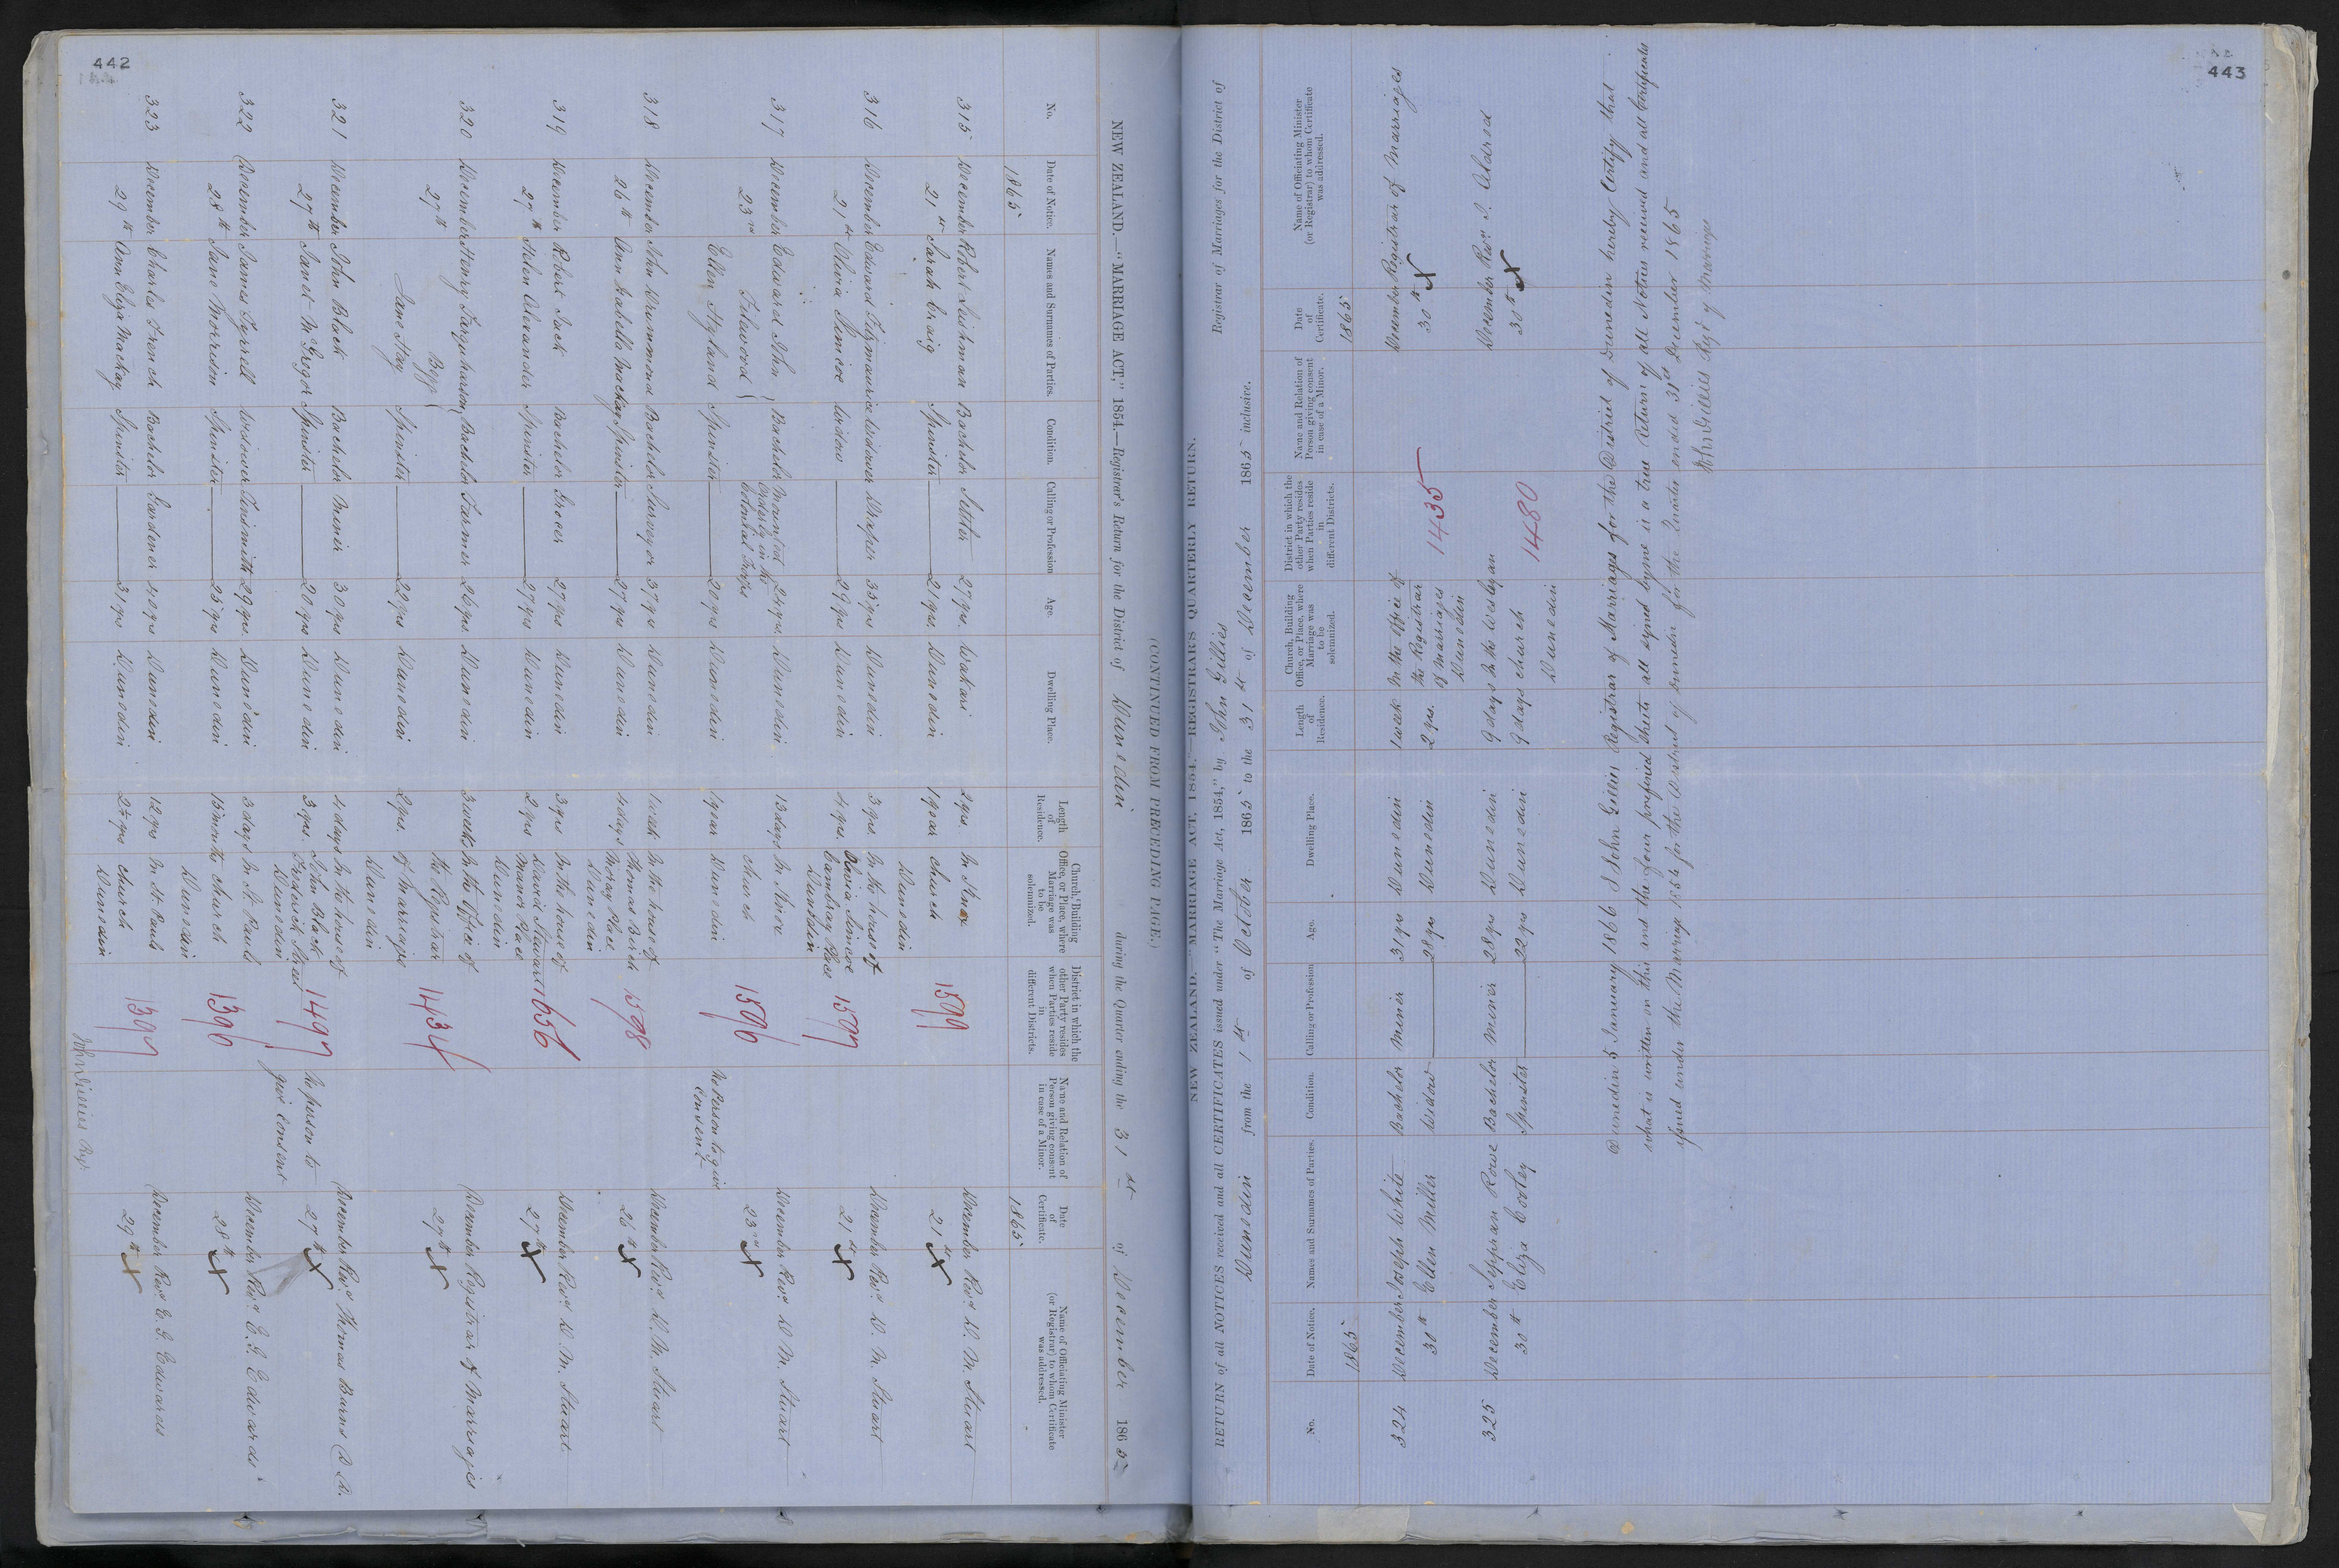 442
(CONTINUED FROM PRECEDING PAGE.)
NEW ZEALAND.—"MARRIAGE ACT," 1854.—Registrar's Return for the District of Dunedin during the Quarter ending the 31st of December 1865
No. Date of Notice. Names and Surnames of Parties. Condition. Calling or Profession Age. Dwelling Place. Length of Residence. Church, Building Office, or Place, where Marriage was to be solemnized. District in which the other Party resides when Parties reside in different Districts. Name and Relation of Person giving consent in case of a Minor. Date of Certificate. Name of Officiating Minister (or Registrar) to whom Certificate was addressed.
1865 1865
315 December Robert Leishman Bachelor Settler 27 yrs. Wakari 2 yrs. In Knox December Revd. D. M. Stuart
21st Sarah Craig Spinster 21 yrs Dunedin 1 year church 1599 21st X
Dunedin
316 December Edward Fitzmaurice Widower Draper 35 yrs Dunedin 3 yrs. In the house of December Revd. D. M. Stuart
21st Olivia Simcoe Widow 29 yrs Dunedin 4 yrs. Olivia Simcoe 1597 21st X
Cambray Place
Dunedin
317 December Edward John Bachelor Mounted 24 yrs. Dunedin 13 days In Knox December Revd. D. M. Stuart
23rd Orderly in the church 1596 23rd X
Colonial Troops
Ellen Hyland Spinster 20 yrs Dunedin 1 year Dunedin No Person to give
consent
318 December John Drummond Bachelor Surveyor 37 yrs Dunedin 1 week In the house of December Revd. D. M. Stuart
26th Ann Isabella Mackay Spinster 27 yrs Dunedin 4 days Thomas Birch 1598 26th X
Moray Place
Dunedin
319 December Robert Jack Bachelor Grocer 27 yrs Dunedin 3 yrs In the house of December Revd. D. M. Stuart
27th Helen Alexander Spinster 27 yrs Dunedin 2 yrs David Stewart 1656 27th X
Manor Place
Dunedin
320 December Henry Farquharson Bachelor Farmer 26 yrs. Dunedin 3 weeks In the office of December Registrar of Marriages
27th Begg the Registrar 1434 27th X
Jane Hay Spinster 22 yrs Dunedin 2 yrs. of Marriages
Dunedin
321 December John Black Bachelor Miner 30 yrs Dunedin 4 days In the house of December Revd. Thomas Burns D.D.
27th Janet McGregor Spinster 20 yrs Dunedin 3 yrs. John Black 1497 No person to 27th X
Frederick Street give consent
Dunedin
322 December James Tyrrell Widower Tinsmith 29 yrs. Dunedin 3 days In St. Pauls December Revd. E. G. Edwards
28th Jane Morrison Spinster 25 yrs Dunedin 15 months church 1396 28th X
Dunedin
323 December Charles French Bachelor Gardener 40 yrs Dunedin 12 yrs In St. Pauls December Revd. E. G. Edwards
29th Ann Eliza Mackay Spinster 31 yrs Dunedin 2½ yrs church 1397 29th X
Dunedin
John Gillies Regr.
443
NEW ZEALAND.—"MARRIAGE ACT, 1854."—REGISTRAR'S QUARTERLY RETURN.
RETURN of all NOTICES received and all CERTIFICATES issued under "The Marriage Act, 1854," by John Gillies Registrar of Marriages for the District of
Dunedin from the 1st of October 1865 to the 31st of December 1865 inclusive.
No. Date of Notice. Names and Surnames of Parties. Condition. Calling or Profession Age. Dwelling Place. Length of Residence. Church, Building Office, or Place, where Marriage was to be solemnized. District in which the other Party resides when Parties reside in different Districts. Name and Relation of Person giving consent in case of a Minor. Date of Certificate. Name of Officiating Minister (or Registrar) to whom Certificate was addressed.
1865 1865
324 December Joseph White Bachelor Miner 31 yrs Dunedin 1 week In the office of December Registrar of Marriages
30th Ellen Miller Widow 28 yrs Dunedin 2 yrs. the Registrar 1435 30th X
of Marriages
Dunedin
325 December Rowe Bachelor Miner 28 yrs Dunedin 9 days In the Wesleyan December Revd. I. Aldred
30th Eliza Corley Spinster 22 yrs Dunedin 9 days church 1480 30th X
Dunedin
Dunedin 5 January 1866 I John Gillies Registrar of Marriages for the District of Dunedin hereby Certify that
what is written on this and the four prefixed sheets all signed by me is a true Return of all Notices received and all Certificates
issued under the Marriage Act 1854 for the District of Dunedin for the Quarter ended 31st December 1865
John Gillies Regr of Marriages